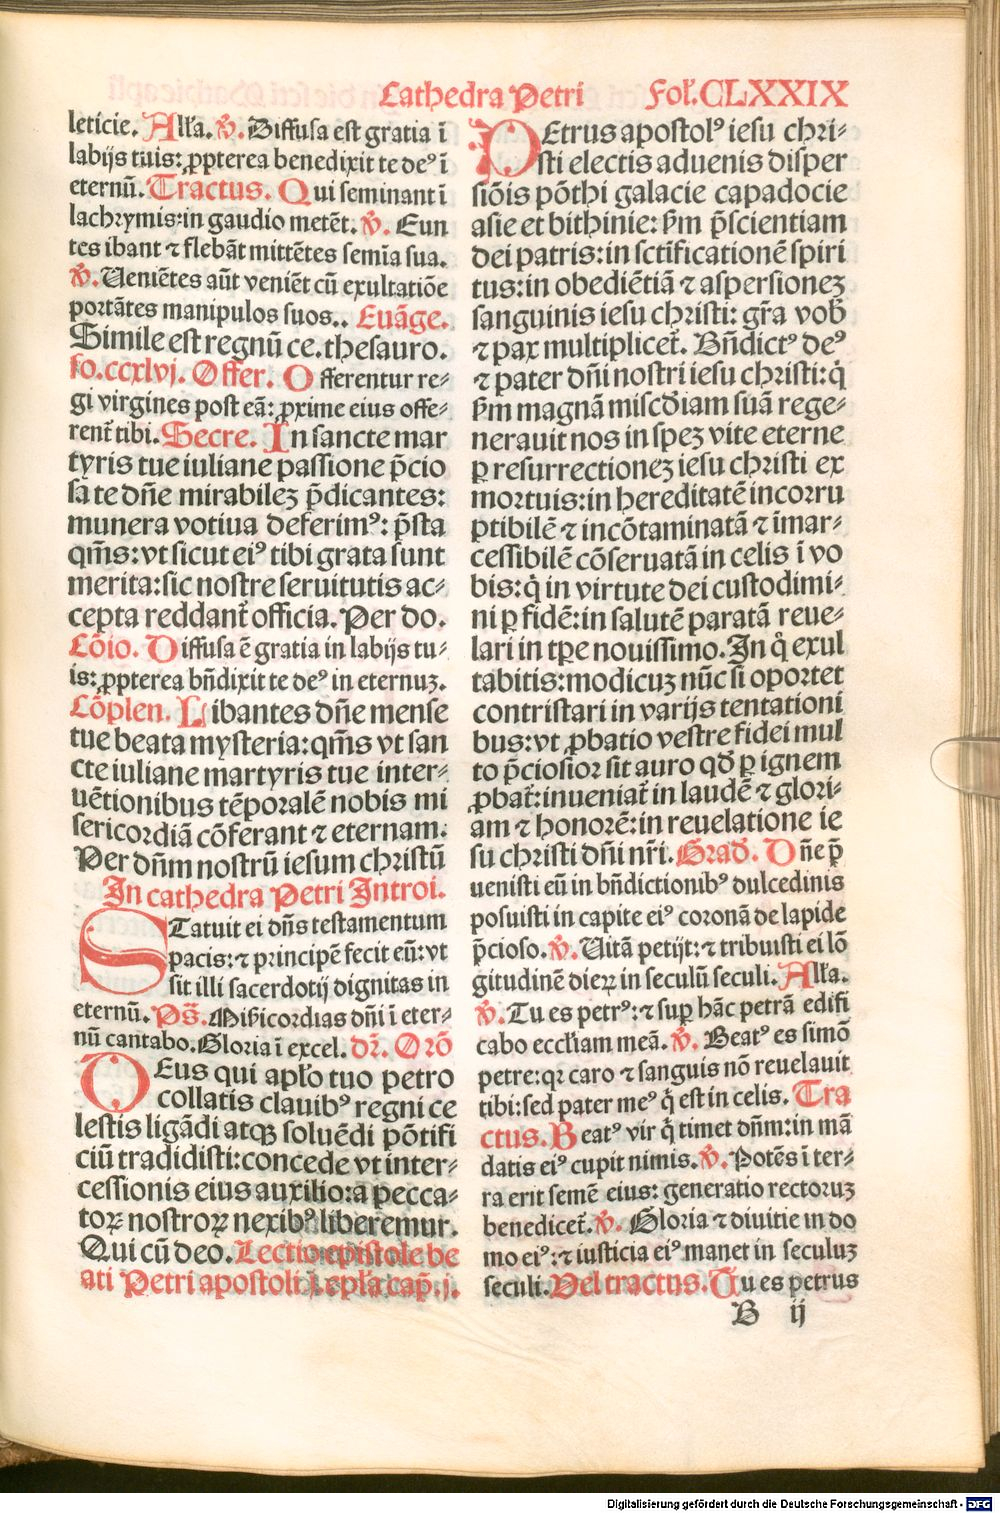 Cathedra Petri Fol᷑.CLXXIX
leticie. Alľa. ℣. Diffusa est gratia ī
labijs tuis: ꝓpterea benedixit te deꝰ ī
eternū. Tractus. Qui seminant ī
lachrymis: in gaudio metēt. ℣. Eun
tes ibant ⁊ flebāt mittētes semīa sua.
℣. Ueniētes aūt veniēt cū exultatiōe
portātes manipulos suos.. Euāge.
Simile est regnū ce. thesauro.
fo.ccxlvj. Offer. Offerentur re⸗
gi virgines post eā: ꝓxime eius offe⸗
rent᷑ tibi. Secre. In sancte mar
tyris tue iuliane passione p̄cio
sa te dn̄e mirabilez p̄dicantes:
munera votiua deferimꝰ: p̄sta
qm̄s: vt sicut eiꝰ tibi grata sunt
merita: sic nostre seruitutis ac⸗
cepta reddant᷑ officia. Per do.
Cōio. Diffusa ē gratia in labijs tu⸗
is: ꝓpterea bn̄dixit te deꝰ in eternuz.
Cōplen. Libantes dn̄e mense
tue beata mysteria: qm̄s vt san
cte iuliane martyris tue inter⸗
uētionibus tēporalē nobis mi
sericordiā cōferant ⁊ eternam.
Per dn̄m nostrū iesum christū
In cathedra Petri Introi.
Statuit ei dn̄s testamentum
pacis: ⁊ principē fecit eū: vt
sit illi sacerdotij dignitas in
eternū. Ps̄. Misēicordias dn̄i ī eter⸗
nū cantabo. Gloria ī excel. dr̄. Orō
Deus qui apl̄o tuo petro
collatis clauibꝰ regni ce
lestis ligādi atqꝫ soluēdi pōtifi
ciū tradidisti: concede vt inter⸗
cessionis eius auxilio: a pecca⸗
toꝝ nostroꝝ nexibꝰ liberemur.
Qui cū deo. Lectio epistole be
ati Petri apostoli .j. epl̄a cap̄.j.
Petrus apostolꝰ iesu chri⸗
sti electis aduenis disper
siōis pōthi galacie capadocie
asie et bithinie: ẜm p̄scientiam
dei patris: in sctificationē spiri
tus: in obediētiā ⁊ aspersionez
sanguinis iesu christi: gr̄a vob̄
⁊ pax multiplicet᷑. Bn̄dictꝰ deꝰ
⁊ pater dn̄i nostri iesu christi: q̇
ẜm magnā miscd̄iam suā rege⸗
nerauit nos in spez vite eterne
ꝑ resurrectionez iesu christi ex
mortuis: in hereditatē incorru
ptibilē ⁊ incōtaminatā ⁊ īmar⸗
cessibilē cōseruatā in celis ī vo
bis: q̇ in virtute dei custodimi⸗
ni ꝑ fidē: in salutē paratā reue⸗
lari in tꝑe nouissimo. In q̇ exul
tabitis: modicuz nūc si oportet
contristari in varijs tentationi
bus: vt ꝓbatio vestre fidei mul
to p̄ciosior sit auro qd̄ ꝑ ignem
ꝓbat᷑: inueniat᷑ in laudē ⁊ glori⸗
am ⁊ honorē: in reuelatione ie
su christi dn̄i nr̄i. Grad̄. Dn̄e p̄
uenisti eū in bn̄dictionibꝰ dulcedinis
posuisti in capite eiꝰ coronā de lapide
p̄cioso. ℣. Uitā petijt: ⁊ tribuisti ei lō
gitudinē dieꝝ in seculū seculi. Alľa.
℣. Tu es petrꝰ: ⁊ suꝑ hāc petrā edifi
cabo eccl̄iam meā. ℣. Beatꝰ es simō
petre: qꝛ caro ⁊ sanguis nō reuelauit
tibi: sed pater meꝰ q̇ est in celis. Tra
ctus. Beatꝰ vir q̇ timet dn̄m: in mā
datis eiꝰ cupit nimis. ℣. Potēs ī ter⸗
ra erit semē eius: generatio rectoruz
benedicet᷑. ℣. Gloria ⁊ diuitie in do
mo eiꝰ: ⁊ iusticia eiꝰ manet in seculuz
seculi. Vel tractus. Tu es petrus
B ij
Digitalisierung gefördert durch die Deutsche Forschungsgemeinschaft - DFG